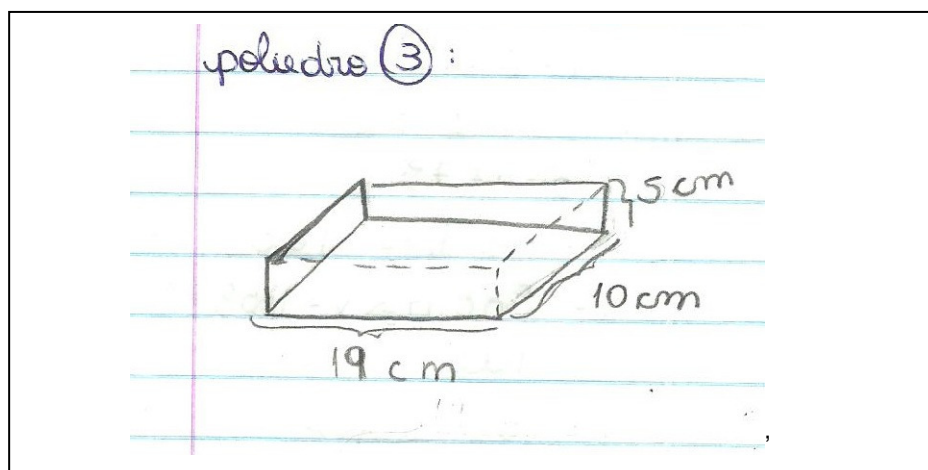 poliedro ③ :
5 cm
10 cm
19 cm
,